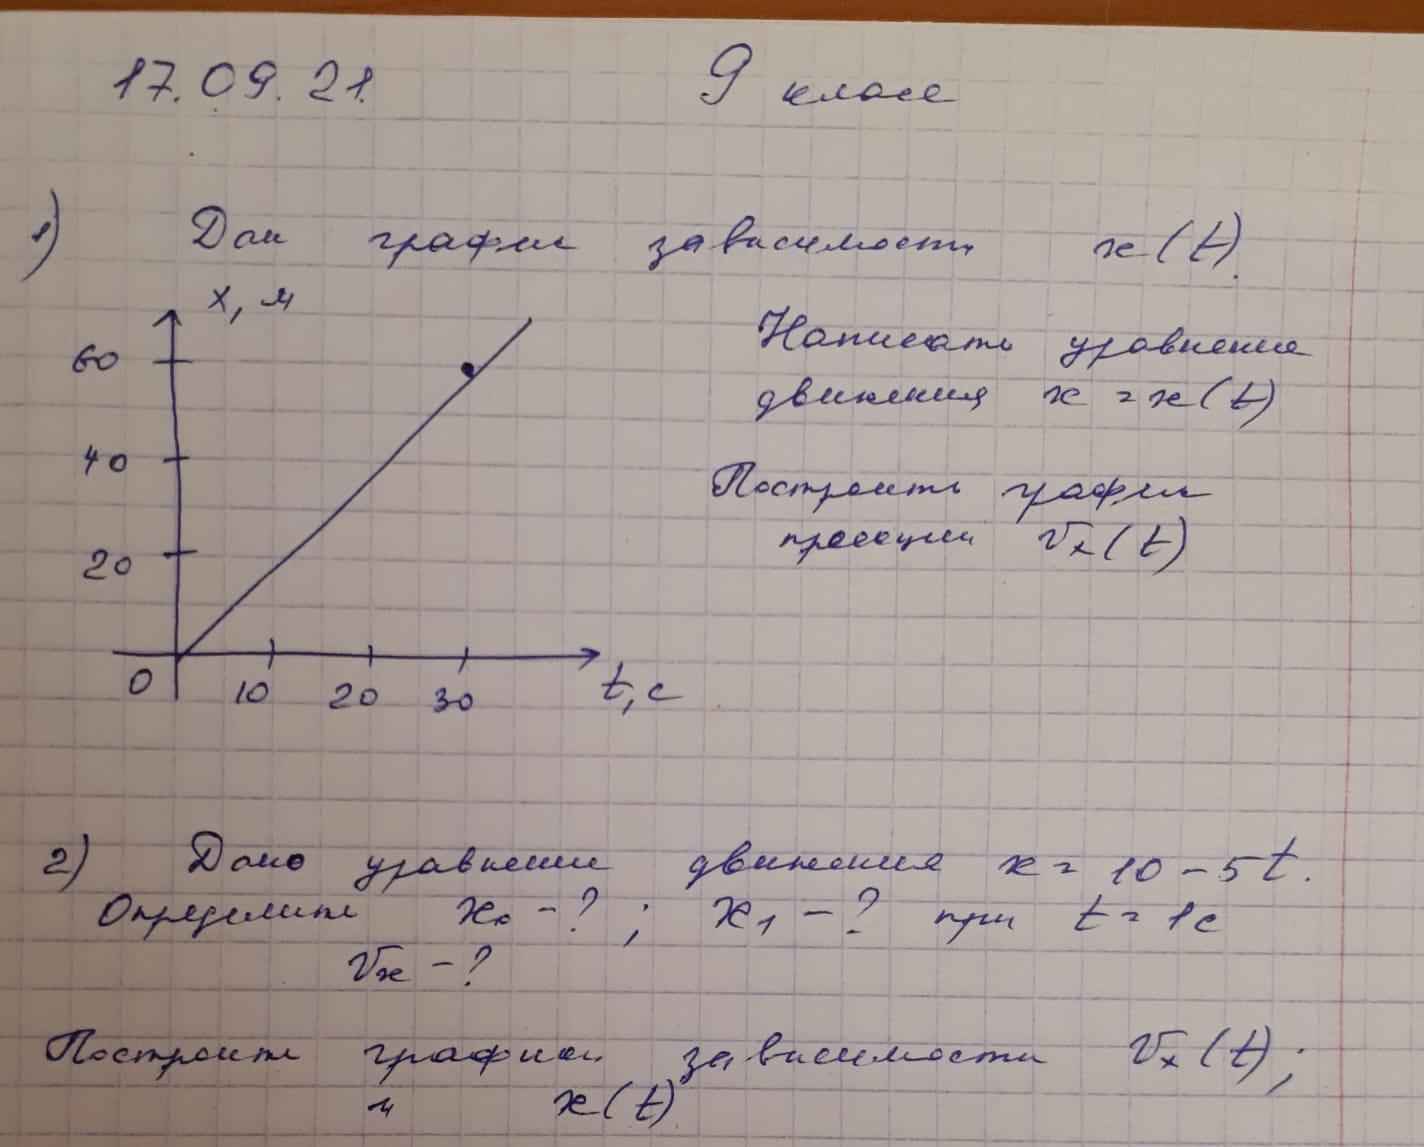 17.09.21. 9 класс
1) Дан график зависимости x(t).
x, м
60
40
20
0 10 20 30 t, с
Написать уравнение
движения x = x(t)
Построить график
проекции Vx(t)
2) Дано уравнение движения x = 10 - 5t.
Определите x₀ - ? ; x₁ - ? при t = 1с
Vx - ?
Построить графики зависимости Vx(t);
и x(t)